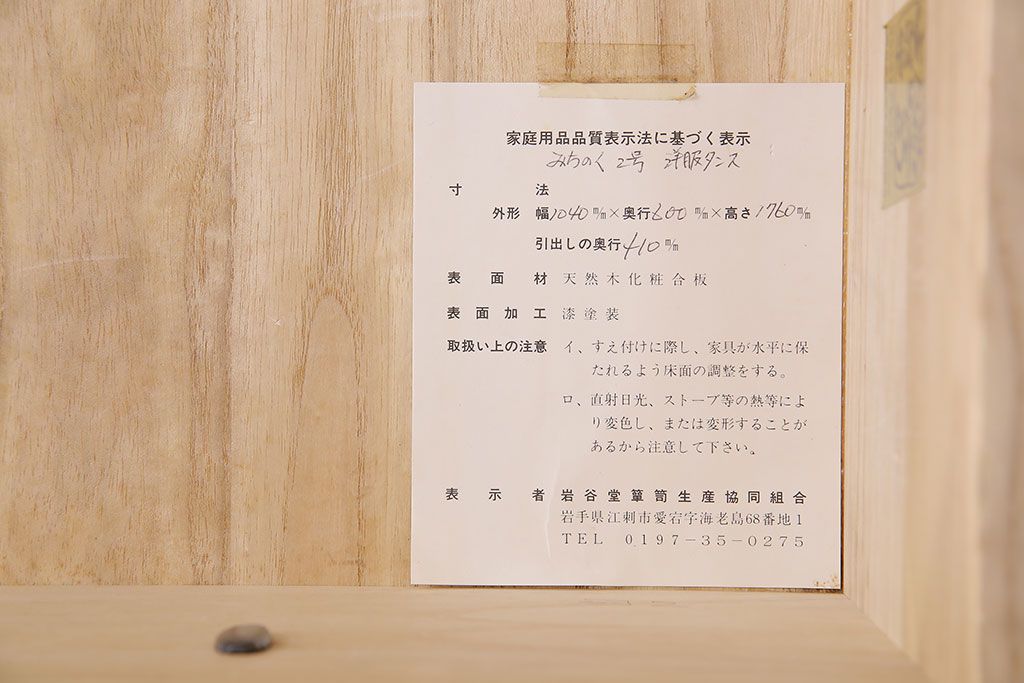 家庭用品品質表示法に基づく表示
みちのく 2号 洋服タンス
寸法
外形 幅1040㎜×奥行600㎜×高さ1760㎜
引出しの奥行410㎜
表面材 天然木化粧合板
表面加工 漆塗装
取扱い上の注意 イ、すえ付けに際し、家具が水平に保
たれるよう床面の調整をする。
ロ、直射日光、ストーブ等の熱等によ
り変色し、または変形することが
あるから注意して下さい。
表示者 岩谷堂簞笥生産協同組合
岩手県江刺市愛宕字海老島68番地1
TEL 0197-35-0275